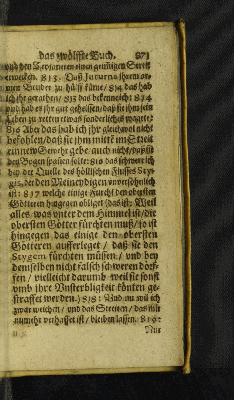 das zwölffte Buch. 871
und den Teroianern einen grausigen Streit
erwecken. 813. Daß Juturna ihrem ar-
men Bruder zu hülff käme/ 814 das hab
ich ihr gerathen/ und das bekenne ich: 814
und hab es ihr gut geheissen/ daß sie ihm sein
Leben zu retten etwas sonderliches wagete:
815 Aber das hab ich ihr gleichwol nicht
befohlen/ daß sie ihm mitt im Streit
ein new Gewehr gebe auch nicht/ daß sie
den Bogen spañen solte: 816 das schwere ich
bey der Quelle des höllischen Flusses Sty-
gis, der den Meineydigen unversöhnlich
ist: 817 welche einige Furcht den obersten
Götteren hingegen obliget (das ist; Weil
alles was unter dem Himmel ist/ die
obersten Götter fürchten muß/ so ist
hingegen das einige den obersten
Götteren aufferleget/ daß sie den
Stygem fürchten müssen/ und bey
demselben nicht falsch schweren dörf-
fen/ vielleicht darumb weil sie sonst
umb ihre Unsterbligkeit könten ge-
straffet werden.) 818: Und nu wil ich
zwar weichen/ und das Streiten/ das mir
nunmehr verhasset ist/ bleiben lassen. 819:
Nur